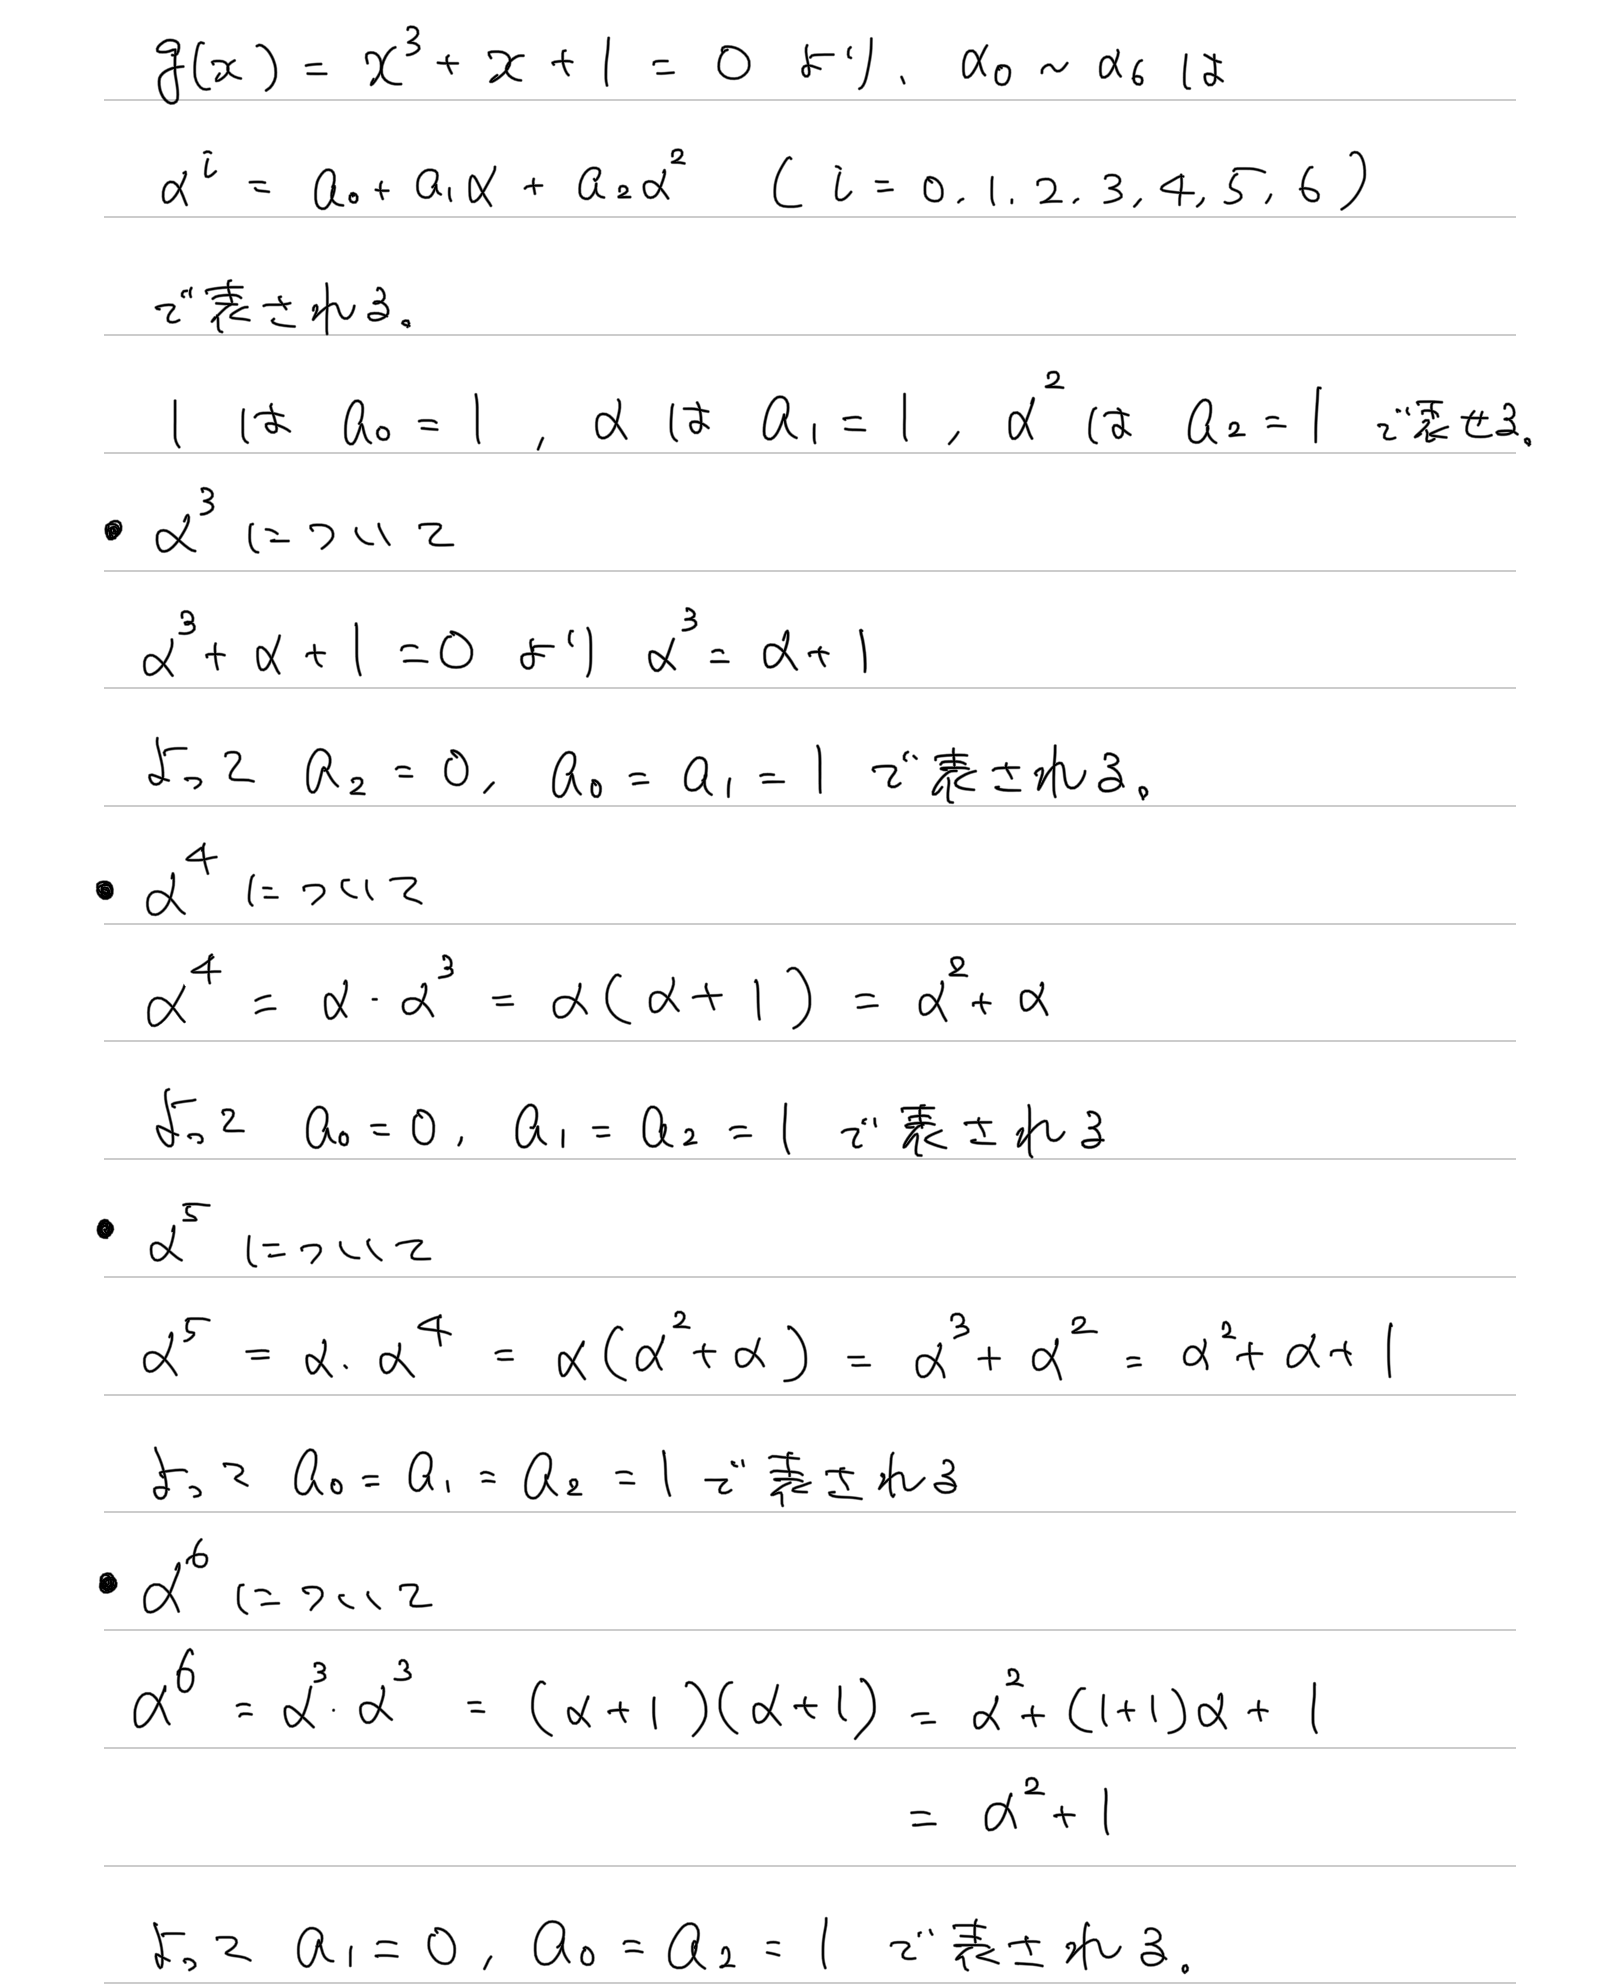 g(x) = x³ + x + 1 = 0 より、α₀ ~ α₆ は
αⁱ = a₀ + a₁α + a₂α² ( i = 0, 1, 2, 3, 4, 5, 6 )
で表される。
1 は a₀ = 1 , α は a₁ = 1 , α² は a₂ = 1 で表せる。
• α³ について
α³ + α + 1 = 0 より α³ = α + 1
よって a₂ = 0, a₀ = a₁ = 1 で表される。
• α⁴ について
α⁴ = α · α³ = α ( α + 1 ) = α² + α
よって a₀ = 0, a₁ = a₂ = 1 で表される
• α⁵ について
α⁵ = α · α⁴ = α ( α² + α ) = α³ + α² = α² + α + 1
よって a₀ = a₁ = a₂ = 1 で表される
• α⁶ について
α⁶ = α³ · α³ = ( α + 1 )( α + 1 ) = α² + (1+1)α + 1
= α² + 1
よって a₁ = 0, a₀ = a₂ = 1 で表される。